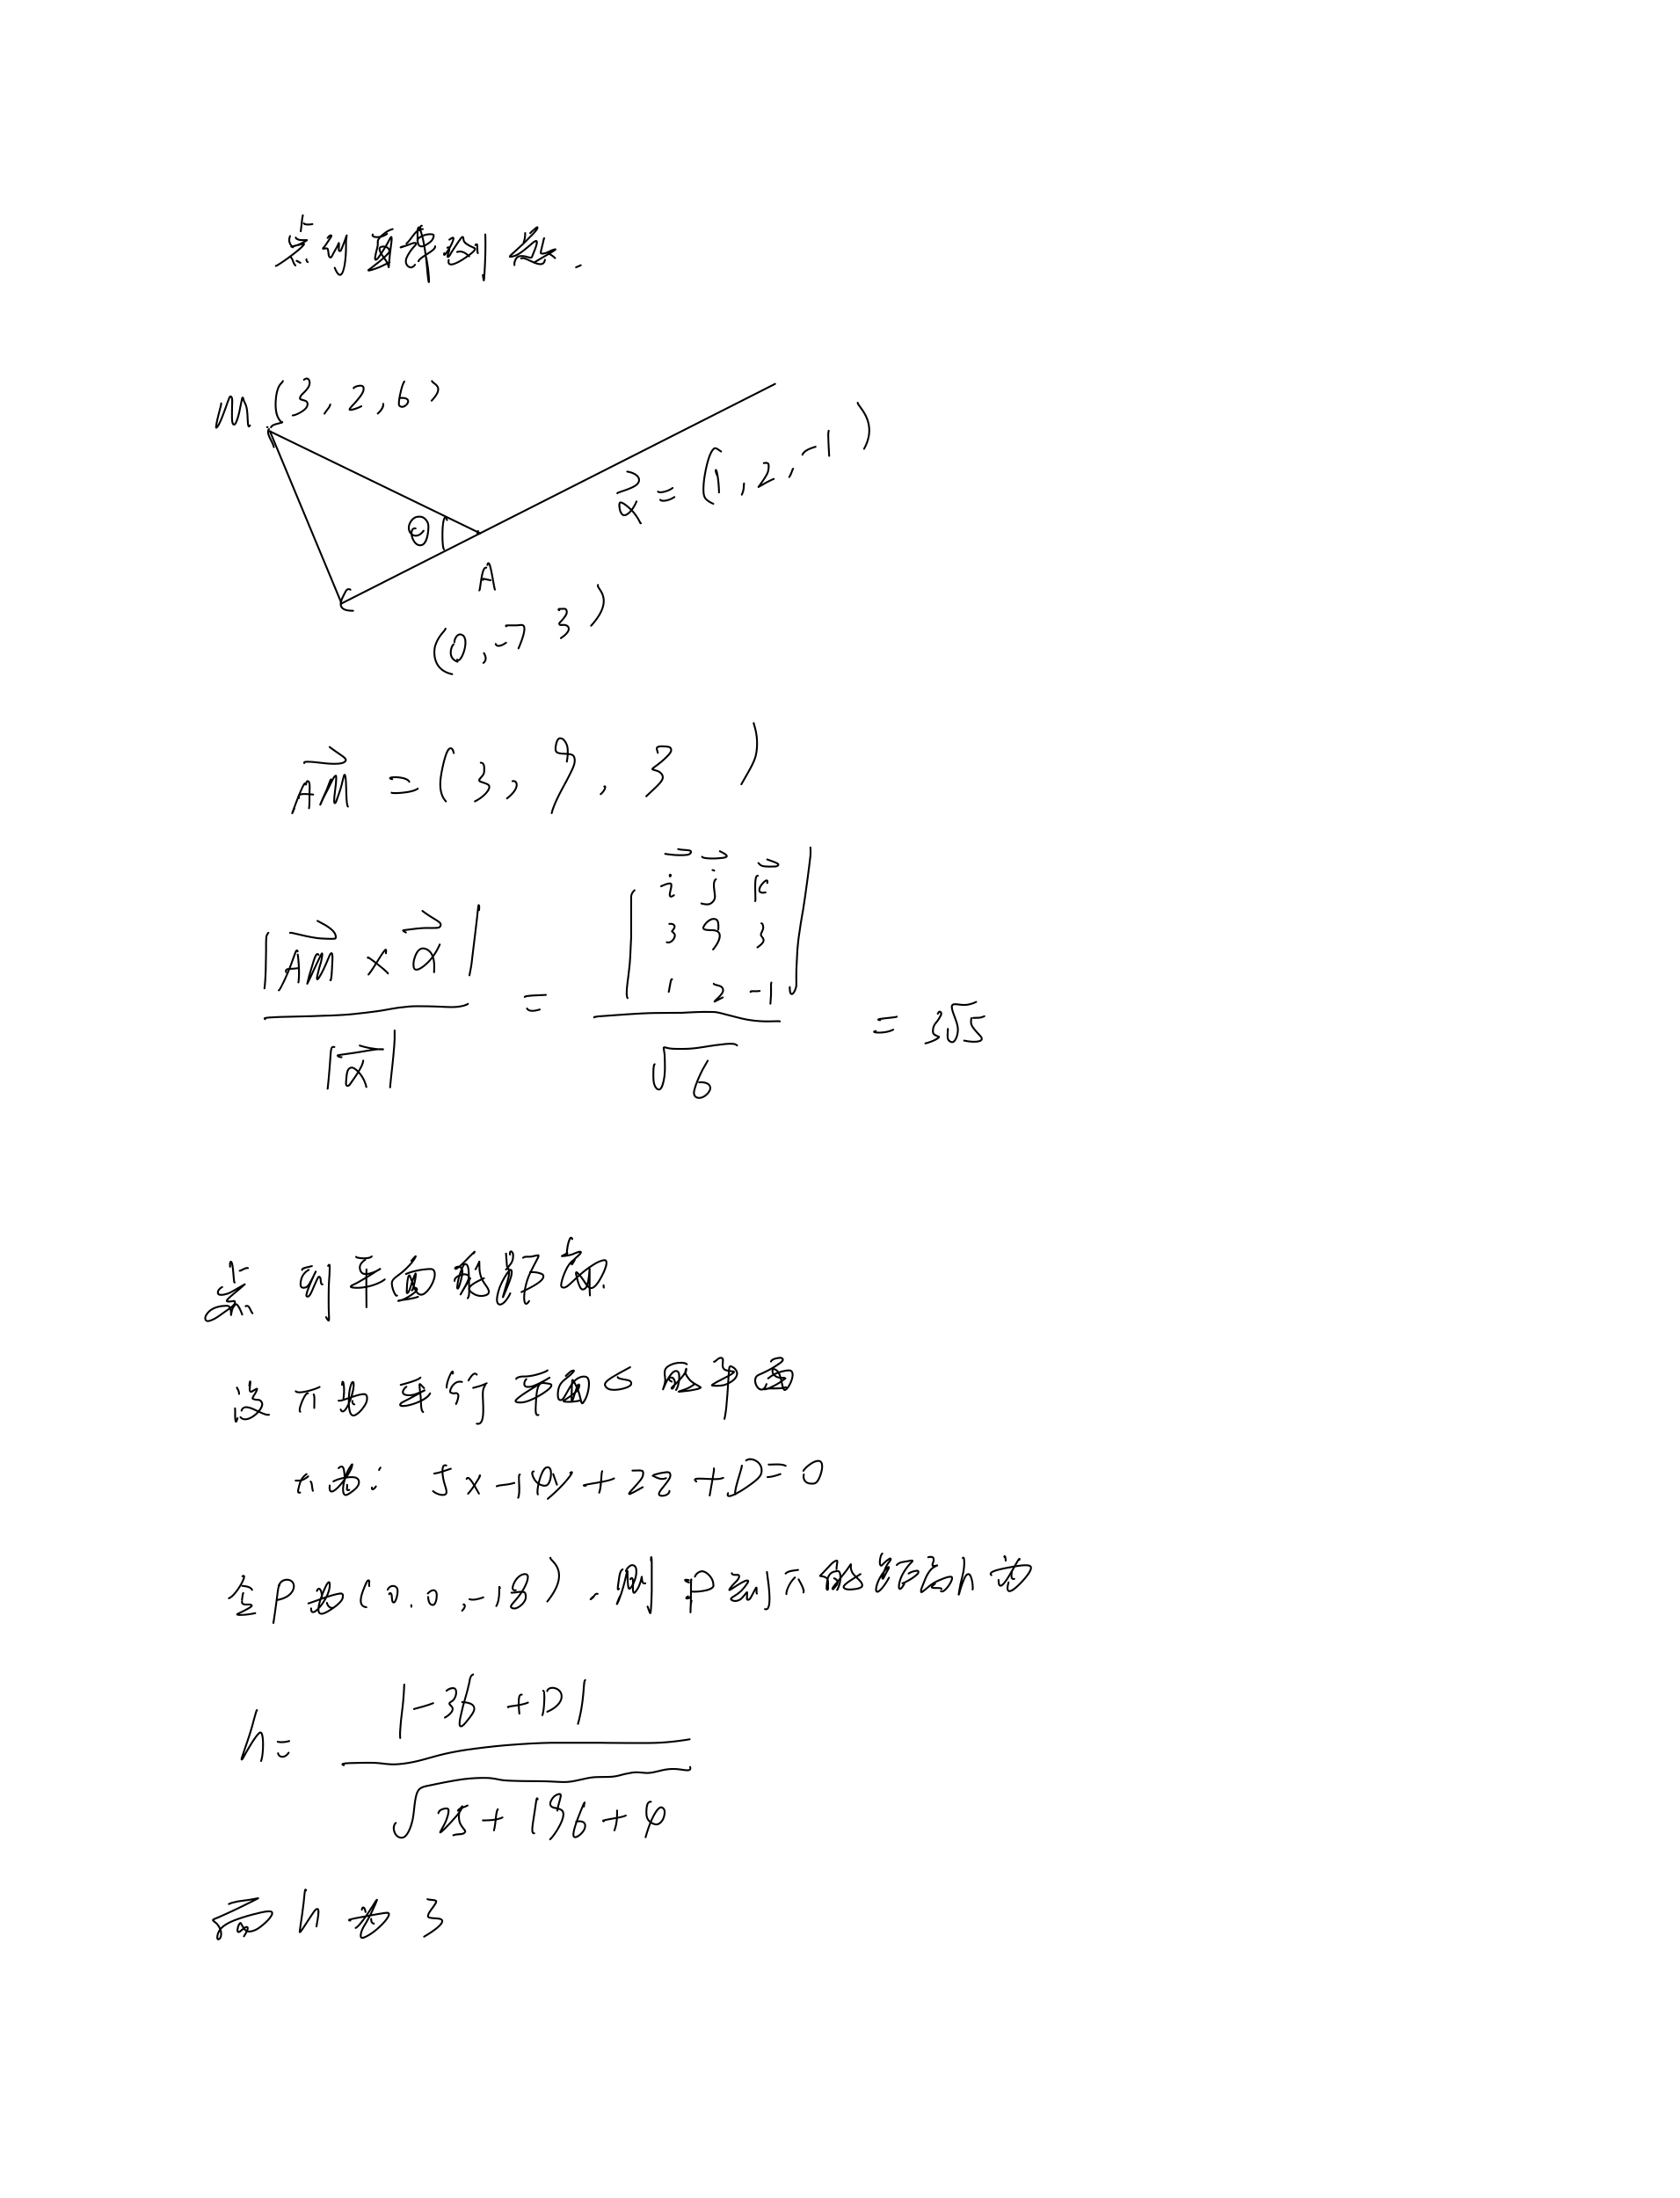 点到直线例题.
M (3, 2, 6)
α⃗ = (1, 2, -1)
θ
A
(0, -7 3)
AM⃗ = (3, 9, 3)
|AM⃗ × α⃗| / |α⃗| = | i⃗ j⃗ k⃗ ; 3 9 3 ; 1 2 -1 | / √6 = 3√5
点到平面的距离.
设π为平行平面C的平面
π为: 5x-14y+2z+D=0
全P为(0.0,-18).则P到π的距离h为
h= |-36+D| / √(25+196+4)
而h为3